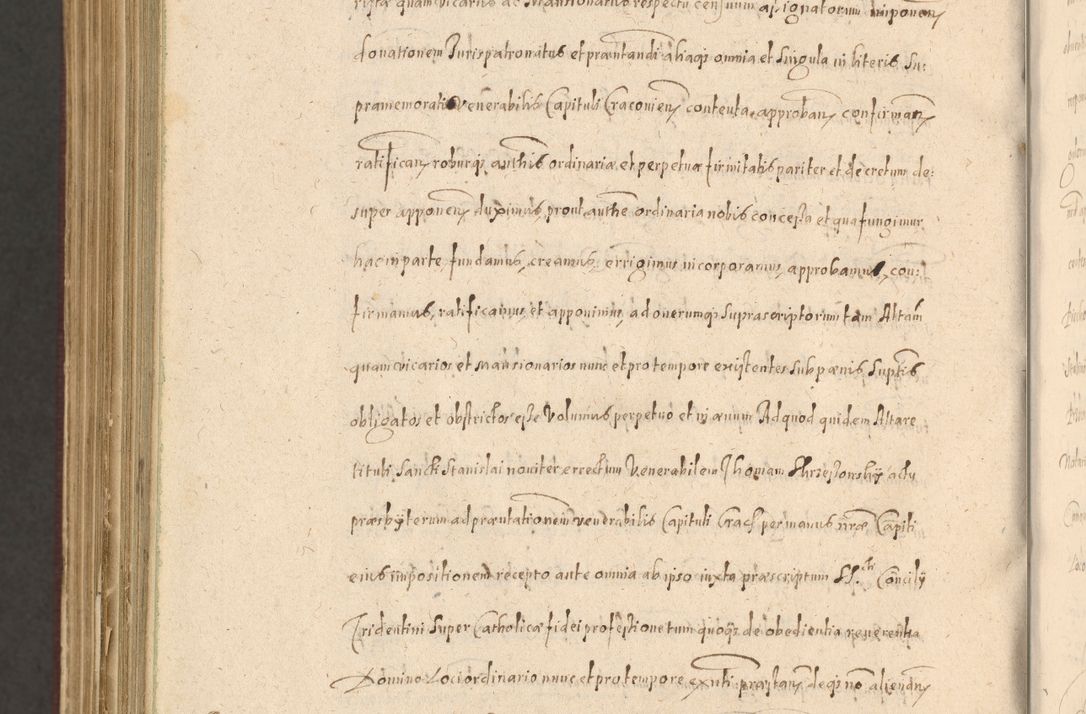 ristæ quam vicarius ac Mansionarius respectu censuum assignatorum imponen
donationem Jurispatronatus et præntandi aliaqz omnia et singula in literis su:
præmemorati Venerabilis Capituli Cracovien contenta, approban, confirman,
ratifican roburqz authtis ordinariæ et perpetuæ firmitatis pariter et decretum de:
super apponen duximus, prout authe ordinaria nobis concessa et qua fungimur
hac in parte, fundamus, creamus, errigimus incorporamus, approbamus, con:
firmamus, ratificamus, et apponimus, ad onerumqz suprascriptorum tam Altam
quam vicarios et Mansionarios nunc et pro tempore existentes sub pænis supttis
obligatos et obstrictos esse Volumus perpetuo et in ævum Ad quod quidem Altare
tituli Sancti Stanislai noviter errectum Venerabilem Thomam actu
præsbyterum ad præntationem venerabilis Capituli Crac per manus nræ Capiti
eius impositionem recepto ante omnia ab ipso iuxta præscriptum SS.cti Concilij
Tridentini super Catholicæ fidei professione tum quoqz de obedientia reverentia
Domino Loci ordinario nunc et pro tempore exnti præstan deqz no alienan